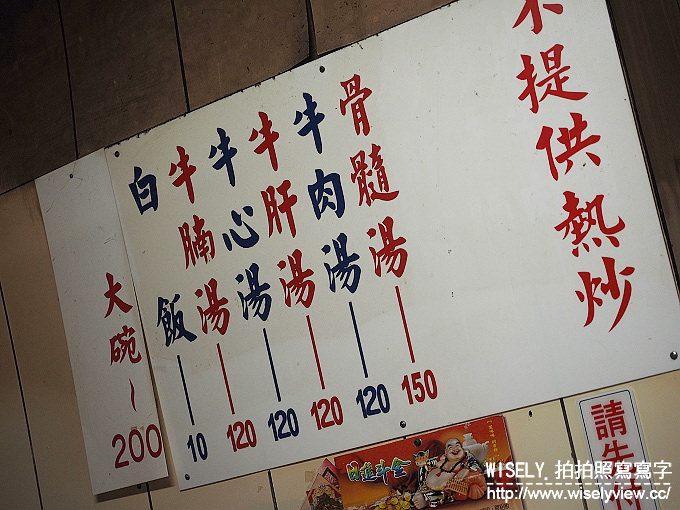 不提供熱炒
骨髓湯 150
牛肉湯 120
牛肝湯 120
牛心湯 120
牛腩湯 120
白飯 10
大碗~200
日進斗金
請先付
WISELY 拍拍照寫寫字
http://www.wiselyview.cc/